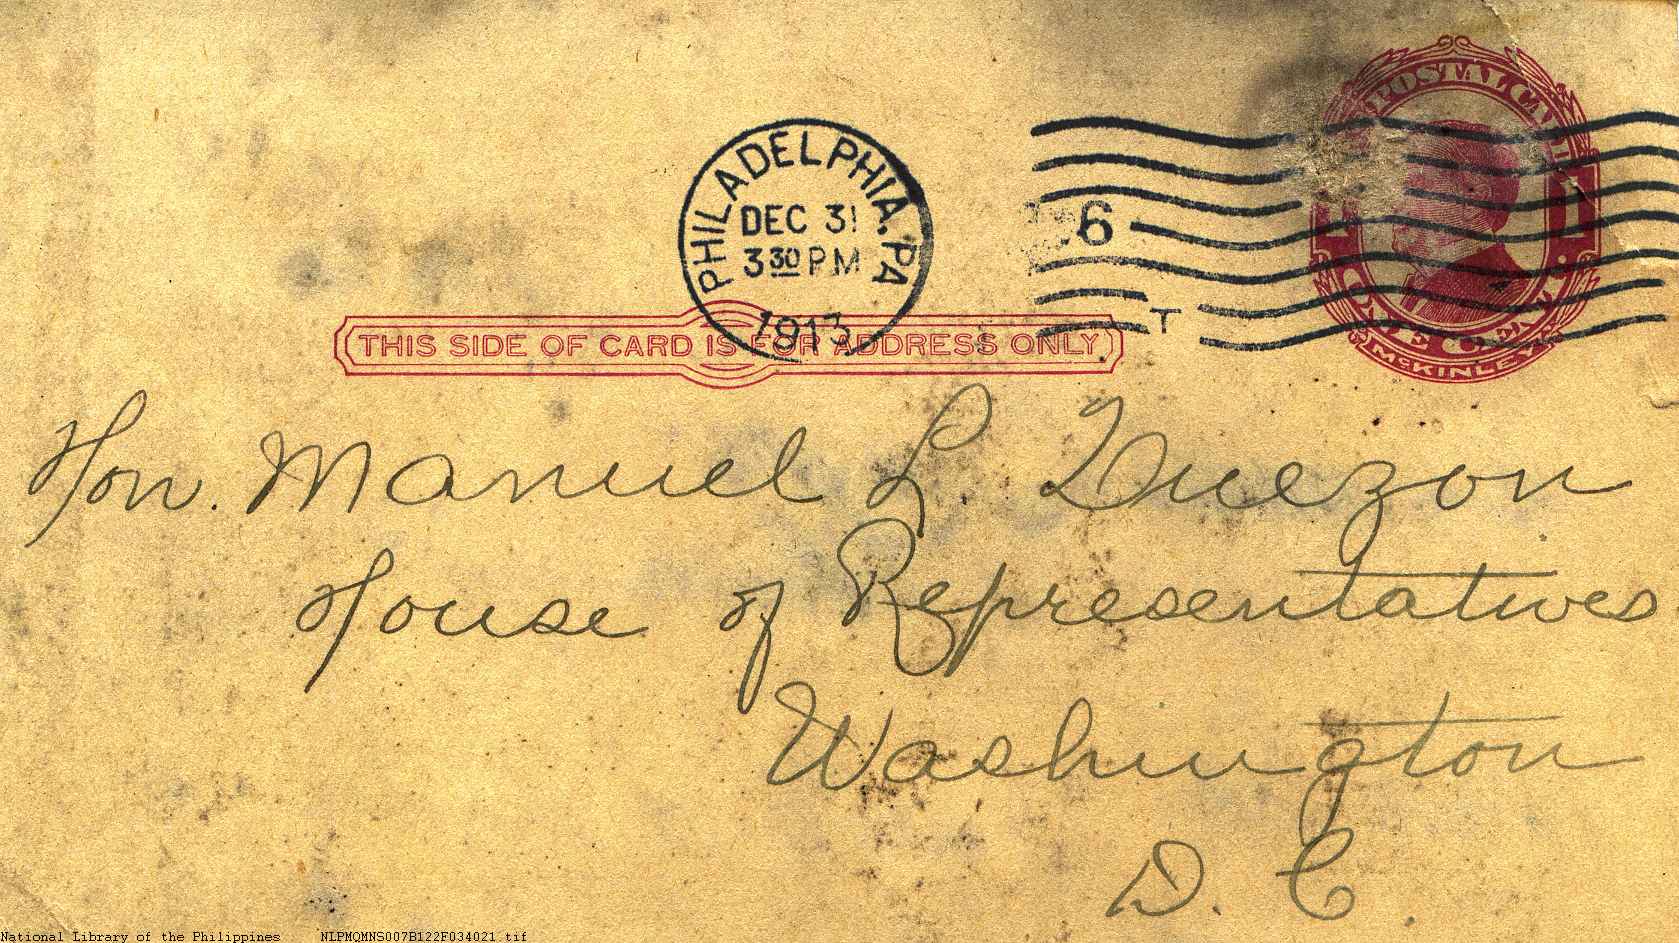 POSTAL CARD
PHILADELPHIA, PA
DEC 31
3 30 PM
1913
6
T
1
ONE CENT
McKINLEY
THIS SIDE OF CARD IS FOR ADDRESS ONLY
Hon. Manuel L. Quezon
House of Representatives
Washington
D. C.
National Library of the Philippines NLPMQMNS007B122F034021.tif